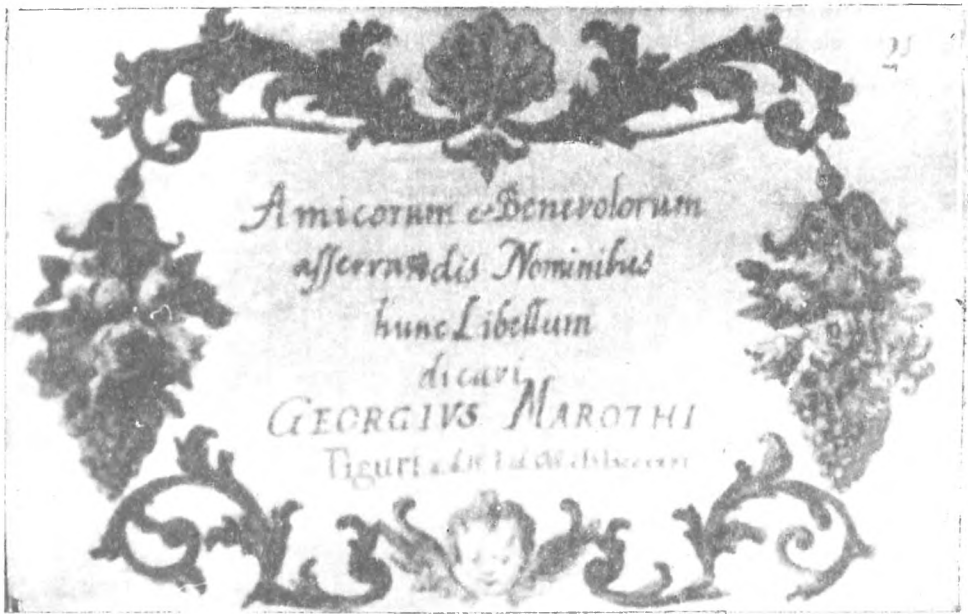 25
Amicorum & Benevolorum
asservandis Nominibus
hunc Libellum
dicavi
GEORGIVS MAROTHI
Tiguri